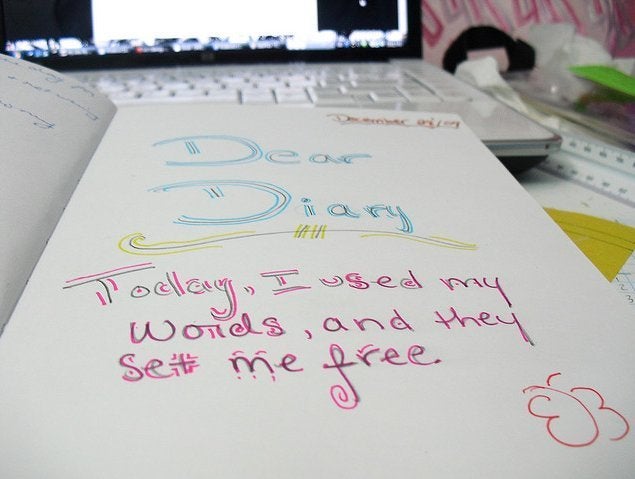 December
Dear
Diary
Today, I used my
words, and they
set me free.